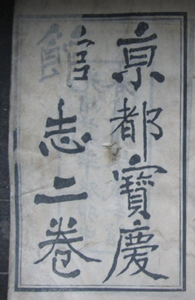 京都寳慶
館志二卷